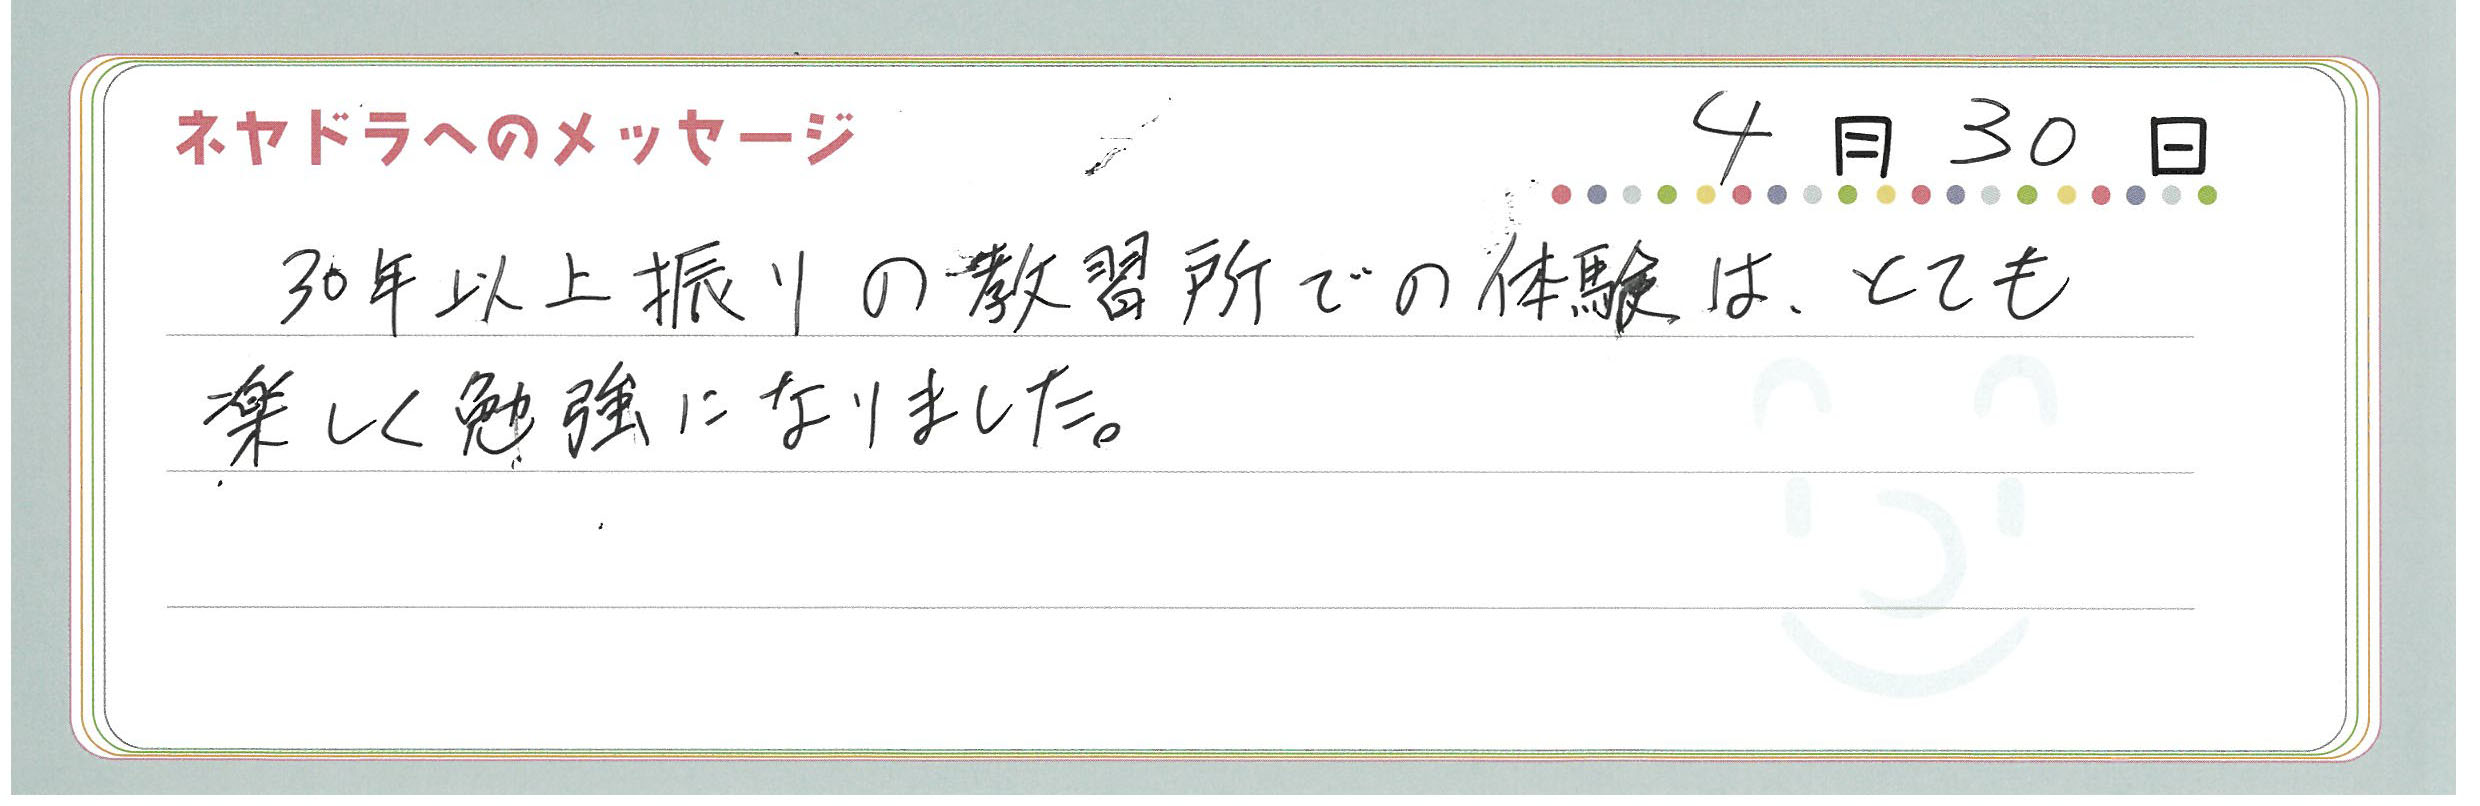 ネヤドラへのメッセージ
4月30日
30年以上振りの教習所での体験は、とても
楽しく勉強になりました。